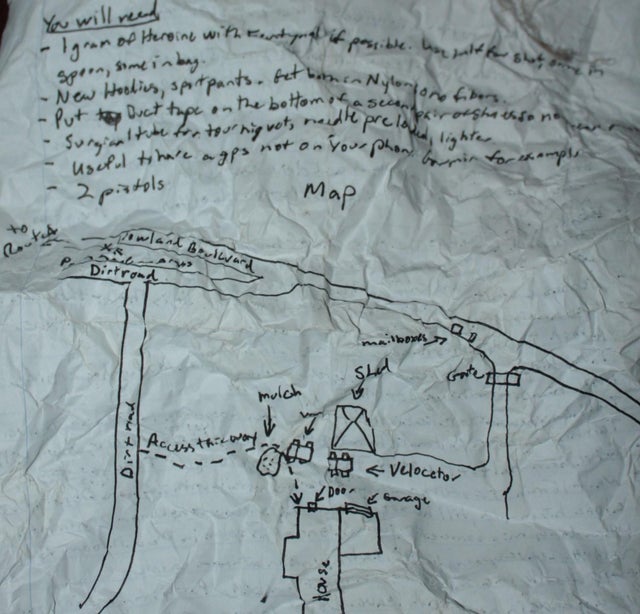 You will need
- 1 gram of Heroine with if possible. Use half for shot, some in
spoon, some in bag.
- New Hoodies, sport pants. Get born in Nylon no fibers.
- Put Duct tape on the bottom of a second pair of shoes so no
- Surgical tube for tourniquets, needle pre loaded, lighter
- Useful to have a gps not on your phone Garmin for example
- 2 pistols
Map
to
Route
Rowland Boulevard
Dirt road
mailboxes
Shed
Gate
mulch
Dirt road
Access this way
Velocetor
Door
Garage
House